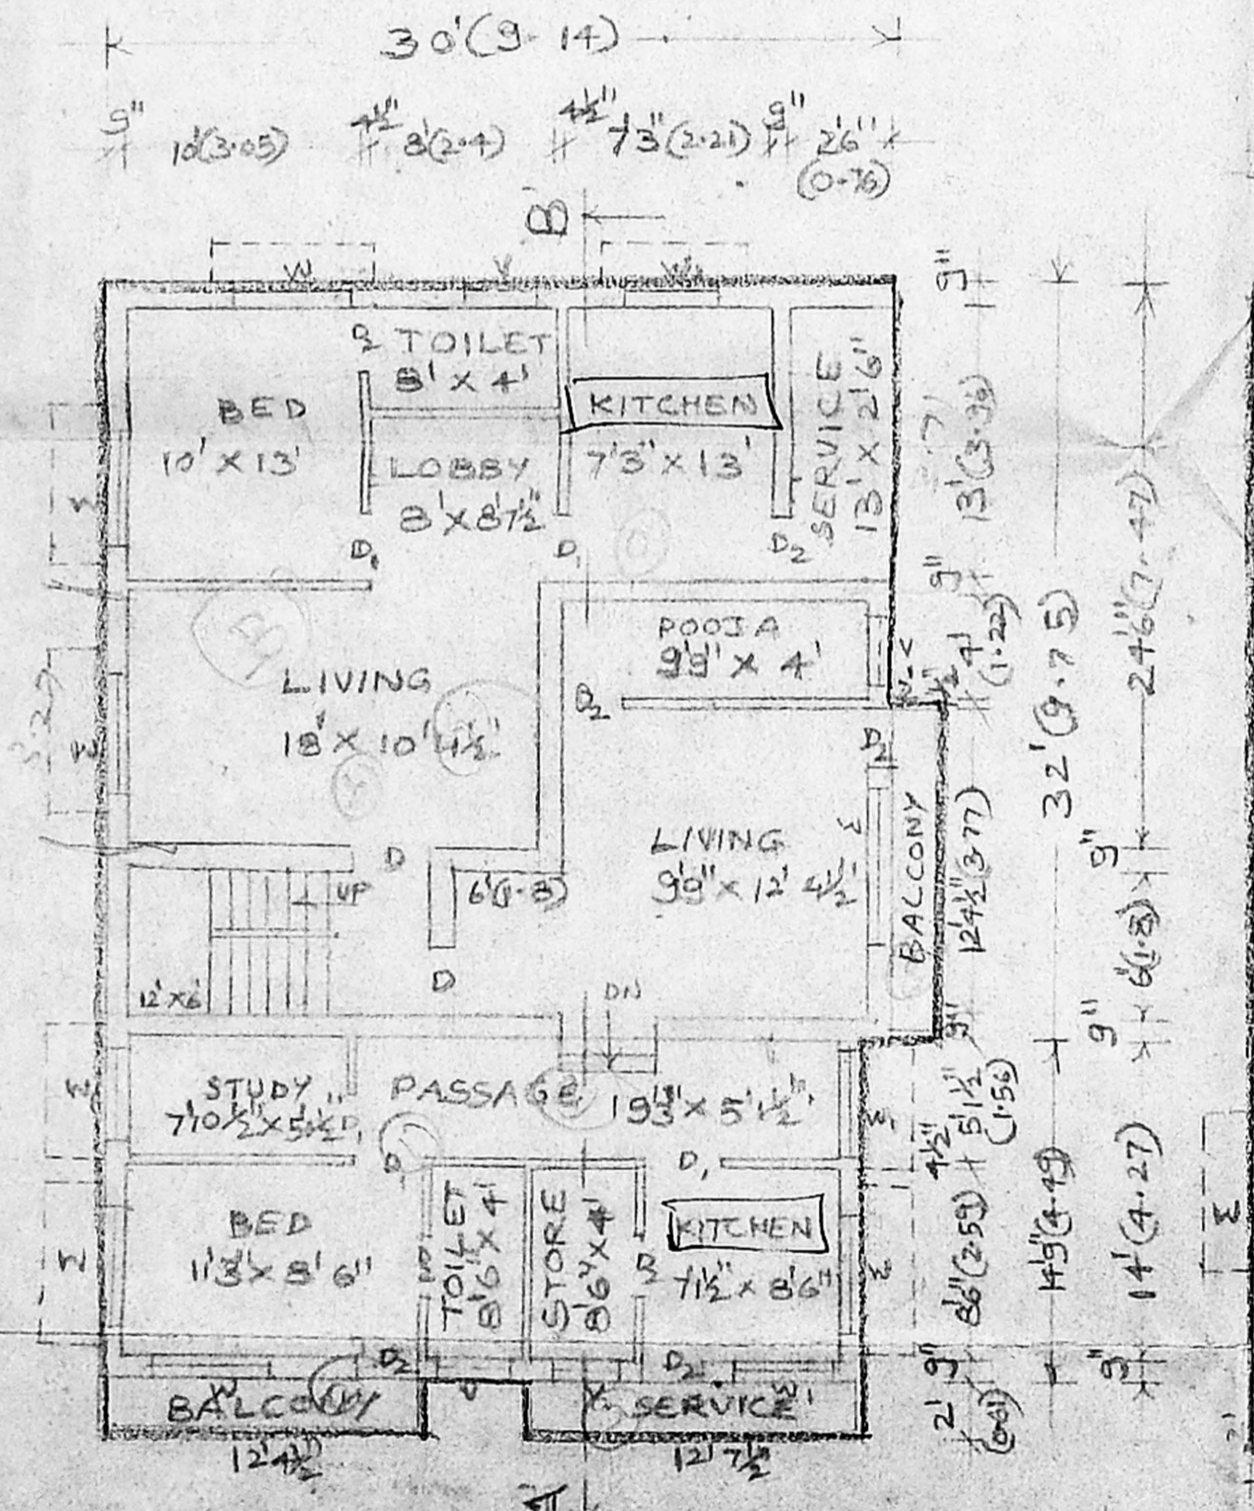 30'(9.14)
9" 10'(3.05) 4½" 8'(2.4) 4½" 7'3"(2.21) 9" 2'6"
(0.76)
B
W V W
D2 TOILET
8' X 4'
BED
10' X 13'
KITCHEN
7'3" X 13'
LOBBY
8' X 8'7½"
SERVICE
13' X 2'6"
D1 D1 D2
W
POOJA
9'9" X 4'
D2
LIVING
18' X 10' 4½"
W
D2
LIVING
9'9" X 12' 4½"
W
BALCONY
D
6'(1.8)
UP
D
12' X 6'
DN
STUDY
7'10½" X 5'1½"
D1
PASSAGE
19'3" X 5'1½"
W
W1
D1 D1
BED
11'3" X 8' 6"
W
TOILET
8'6" X 4'
STORE
8'6" X 4'
D2
KITCHEN
7'1½" X 8'6"
W
D2 D2
W V V W1
BALCONY
12'4½"
SERVICE
12' 7½"
A
9"
13'(3.96)
9"
4'
(1.22)
4½"
12'4½"(3.77)
9"
5'1½"
(1.56)
4½"
8'6"(2.59)
9"
2'
(0.61)
32'(9.75)
14'9"(4.49)
24'6"(7.47)
9"
6'(1.8)
9"
14'(4.27)
9"
W